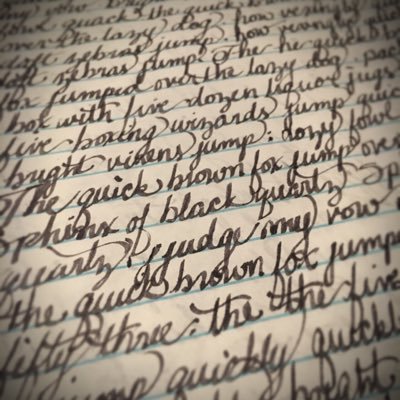 quack the quick
over the lazy dog. how vexingly
daft zebras jump. how
daft zebras jump! The he quick
fox jumped over the lazy dog. pac
box with five dozen liquor jugs
five boxing wizards jump quic
bright vixens jump; dozy fowl
The quick brown fox jump over
sphinx of black quartz
quartz! judge my vow
the quick brown fox jumped
fifty three. the the five
jump quickly
bright